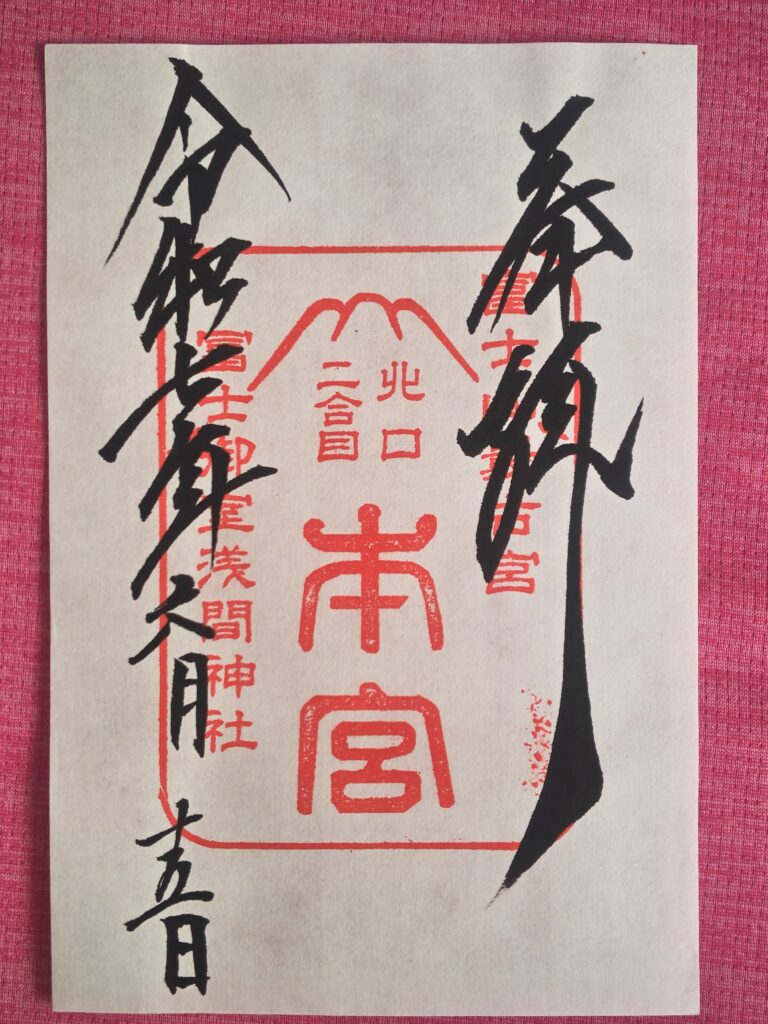 奉拝
冨士山最古宮
北口
二合目
本宮
冨士御室浅間神社
令和七年六月十五日